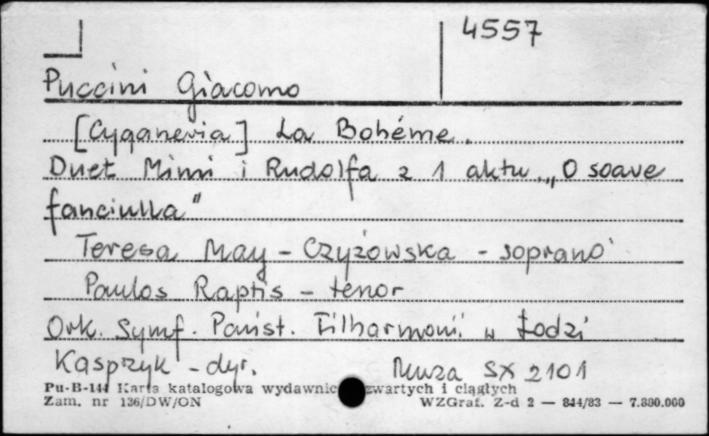 4557
Puccini Giacomo
[Cyganeria] La Bohéme.
Duet Mimi i Rudolfa z 1 aktu „O soave
fanciulla"
Teresa May-Czyżowska - sopran
Paulos Raptis - tenor
Ork. Symf. Państ. Filharmonii w Łodzi
Kasprzyk - dyr. Muza SX 2101
Pu-B-144 Karta katalogowa wydawnic zwartych i ciągłych
Zam. nr 136/DW/ON WZGraf. Z-d 2 — 844/83 — 7.880.000